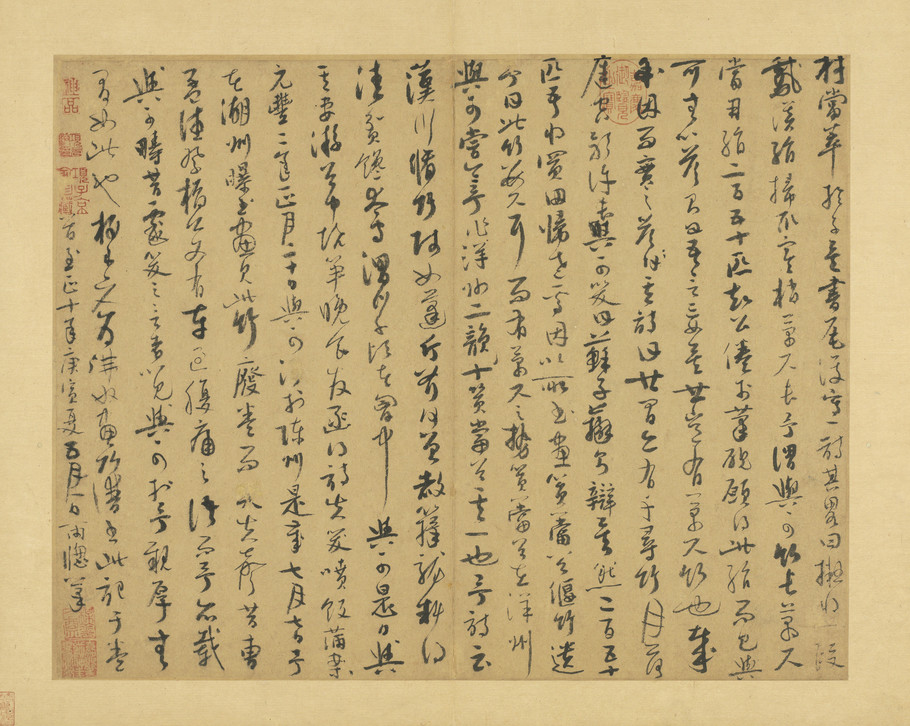 材當萃於子矣書尾復寫一詩其略曰擬將一段
鵝溪絹掃取寒梢萬尺長予謂與可竹長萬尺
當用絹二百五十匹知公倦於筆硯願得此絹而已與
可無以答曰吾言妄矣世豈有萬尺竹也哉
余因而實之答其詩曰世間亦有千尋竹月落
庭空影許長與可笑曰蘇子辯則辯矣然二百五十
匹吾將買田歸老焉因以所畫篔簹谷偃竹遺
予曰此竹數尺耳而有萬尺之勢篔簹谷在洋州
與可嘗令予作洋州二韻十篔簹谷其一也予詩云
漢川脩竹賤如蓬斤斧何曾赦籜龍料得
清貧饞太守渭川千畝在胸中與可是日與
其妻游谷中燒筍晚食發函得詩失笑噴飯滿案
元豐二年正月二十日與可沒於陳州是歲七月七日予
在湖州曝書畫見此竹廢卷而哭失聲昔曹
孟德祭橋公文有車過腹痛之語而予亦載
與可疇昔戲笑之言者以見與可於予親厚無
間如此也梅道人為佛奴畫竹譜書此記于卷
首至正十年庚寅夏五月一日雨窗筆